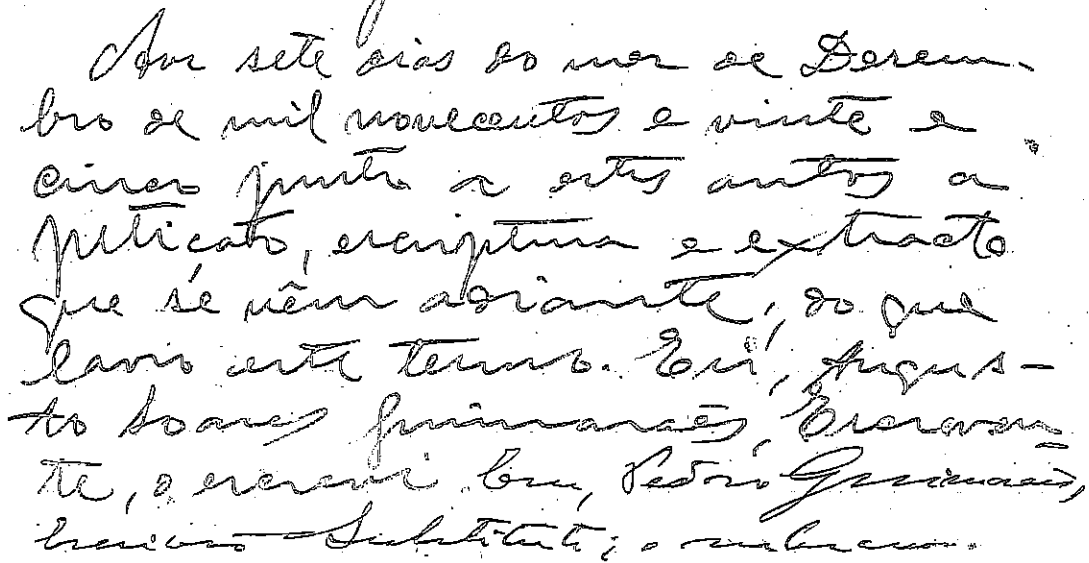 Aos sete dias do mez de Dezem-
bro de mil novecentos e vinte e
cinco junto a estes autos a
petição, escriptura e extracto
que se vêm adiante, do que
lavro este termo. Eu, Augus-
to Soares Guimarães, Escreven-
te, o escrevi. Eu, Pedro Guimarães,
Escrivão Substituto, o subscrevo.